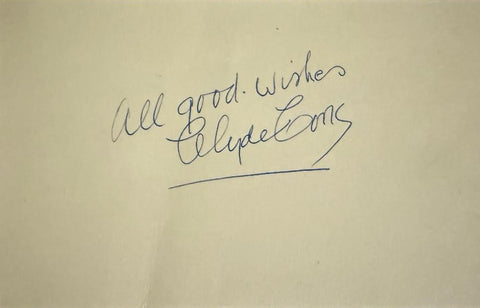 All good wishes
Clyde